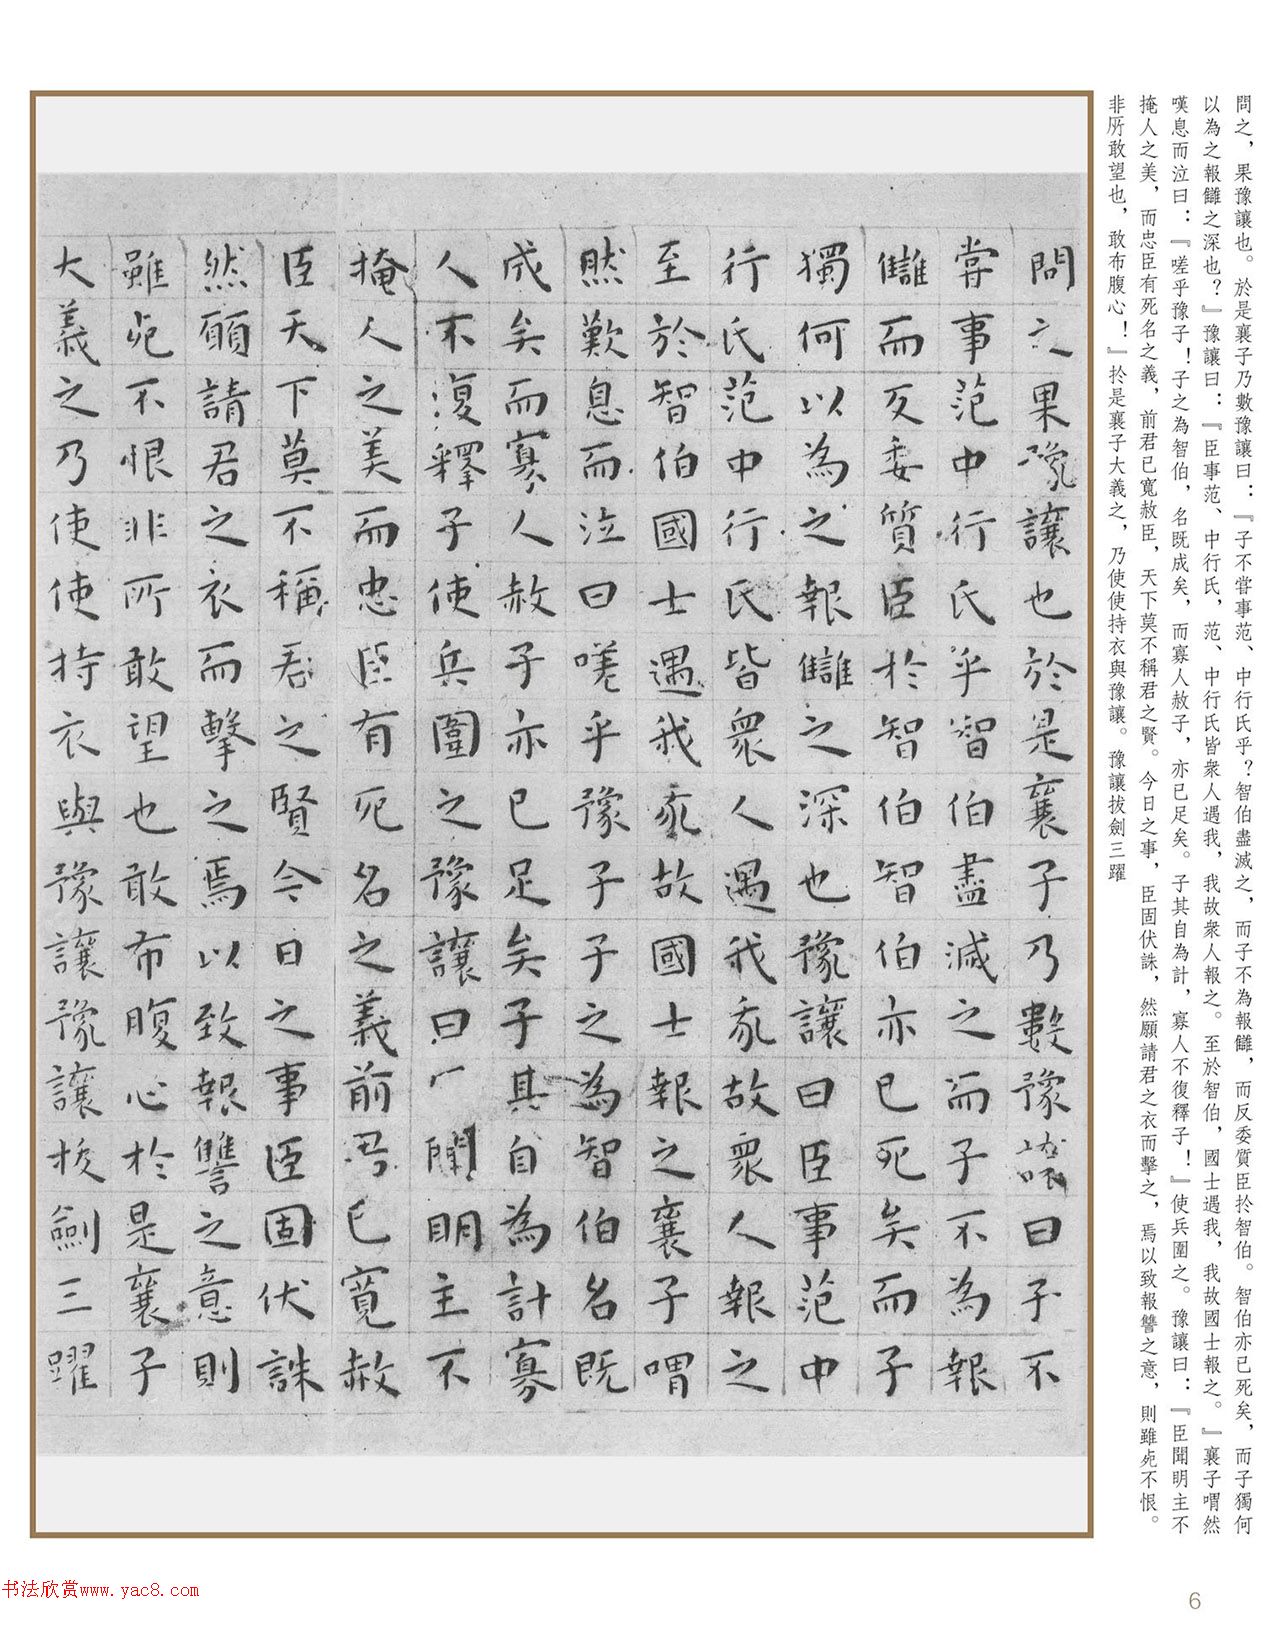 問之，果豫讓也。於是襄子乃數豫讓曰：『子不嘗事范、中行氏乎？智伯盡滅之，而子不為報讎，而反委質臣於智伯。智伯亦已死矣，而子獨何
以為之報讎之深也？』豫讓曰：『臣事范、中行氏，范、中行氏皆衆人遇我，我故衆人報之。至於智伯，國士遇我，我故國士報之。』襄子喟然
嘆息而泣曰：『嗟乎豫子！子之為智伯，名既成矣，而寡人赦子，亦已足矣。子其自為計，寡人不復釋子！』使兵圍之。豫讓曰：『臣聞明主不
掩人之美，而忠臣有死名之義，前君已寬赦臣，天下莫不稱君之賢。今日之事，臣固伏誅，然願請君之衣而擊之，焉以致報讐之意，則雖死不恨。
非所敢望也，敢布腹心！』於是襄子大義之，乃使使持衣與豫讓。豫讓拔劍三躍
問之果豫讓也於是襄子乃數豫讓曰子不
嘗事范中行氏乎智伯盡滅之而子不為報
讎而反委質臣於智伯智伯亦已死矣而子
獨何以為之報讎之深也豫讓曰臣事范中
行氏范中行氏皆衆人遇我我故衆人報之
至於智伯國士遇我我故國士報之襄子喟
然歎息而泣曰嗟乎豫子子之為智伯名既
成矣而寡人赦子亦已足矣子其自為計寡
人不復釋子使兵圍之豫讓曰聞明主不
掩人之美而忠臣有死名之義前君已寬赦
臣天下莫不稱君之賢今日之事臣固伏誅
然願請君之衣而擊之焉以致報讐之意則
雖死不恨非所敢望也敢布腹心於是襄子
大義之乃使使持衣與豫讓豫讓拔劍三躍
书法欣赏www.yac8.com
6